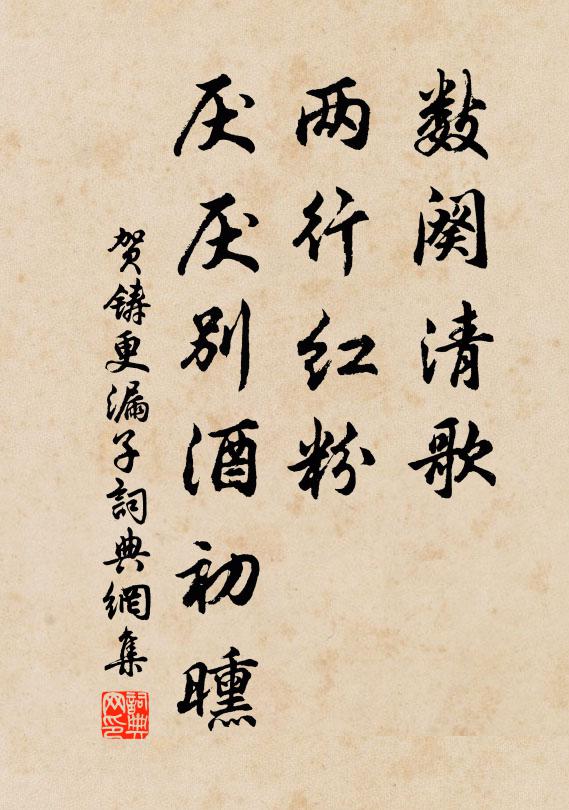 数阕清歌
两行红粉
厌厌别酒初曛
贺铸更漏子詞典網集
詞典网印